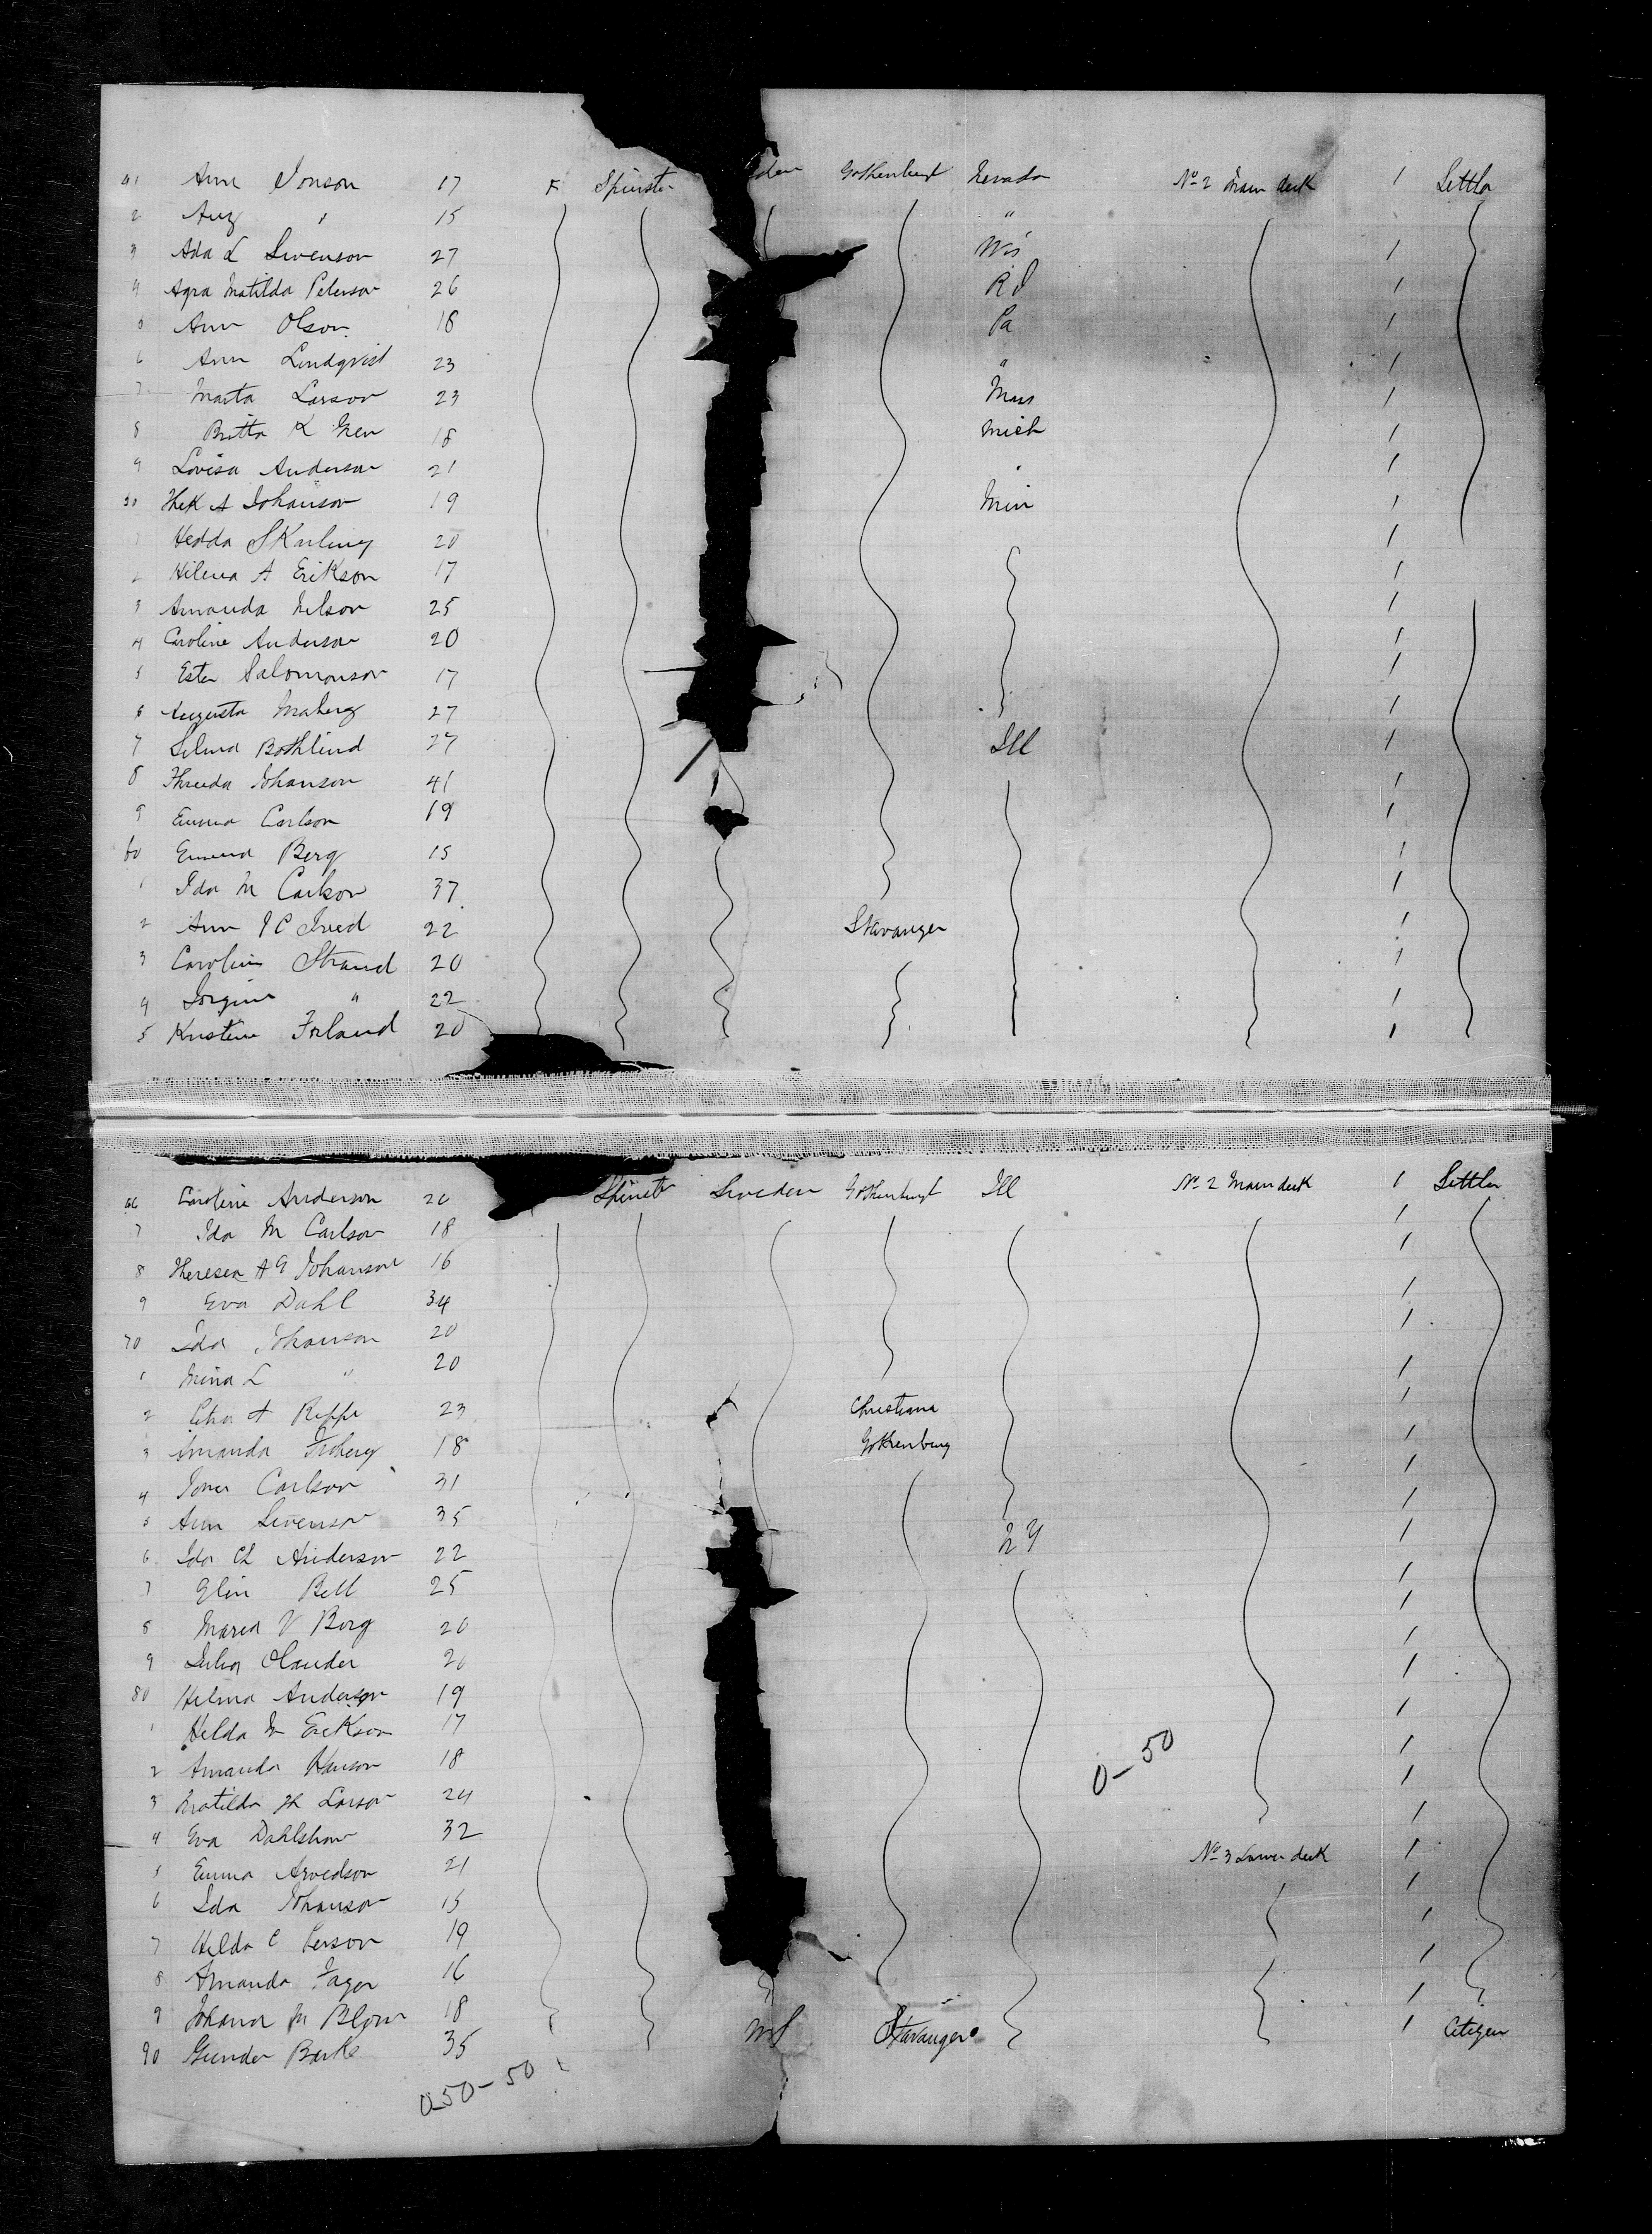 41 Ann Jonson 17 F Spinster eden Gothenburg Nevada No 2 Main deck 1 Settler
2 Aug " 15 "
3 Ada L Swenson 27 Wis 1
4 Agra Matilda Peterson 26 R I 1
5 Ann Olson 18 Pa 1
6 Ann Lindqvist 23 " 1
7 Marta Larson 23 Mass 1
8 Britta K Gren 18 Mich 1
9 Lovisa Anderson 21 " 1
50 A Johanson 19 Min 1
1 Hedda Skarling 20 1
2 Hilma A Erikson 17 1
3 Amanda Nelson 25 1
4 Caroline Anderson 20 1
5 Ester Salomonson 17 1
6 Augusta 27 1
7 Selma Bothlind 27 Ill 1
8 Johanson 41 1
9 Emma Carlson 19 1
60 Emma Berg 15 1
1 Ida M Carlson 37 1
2 Ann 22 Stavanger 1
3 Caroline Strand 20 1
4 Jorgine " 22 1
5 Kristine Forland 20 1
66 Caroline Anderson 20 Spinster Sweden Gothenburg Ill No 2 Main deck 1 Settler
7 Ida M Carlson 18 1
8 Theresea A G Johanson 16 1
9 Eva Dahl 34 1
70 Ida Johanson 20 1
1 Mina L " 20 1
2 A 23 Christiana 1
3 Amanda Froberg 18 Gothenburg 1
4 Carlson 31 1
5 Ann Swenson 35 N Y 1
6 Ida Ch Anderson 22 1
7 Elin Bell 25 1
8 Maria V Borg 20 1
9 Olander 20 1
80 Helma Anderson 19 1
1 Hilda M Erikson 17 1
2 Amanda Hanson 18 1
0-50
3 Matilda Larson 24 1
4 Eva Dahlstrom 32 No 3 Lower deck 1
5 Emma Arvedson 21 1
6 Ida Johanson 15 1
7 Hilda C Person 19 1
8 Amanda Fager 16 1
9 Johana M Blom 18 1
90 Gunder Barke 35 US Stavanger 1 Citizen
0-50-50